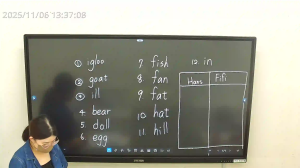 2025/11/06 13:37:08
① igloo
② goat
③ ill
4 bear
5 doll
6 egg
7 fish
8 fan
9 fat
10 hat
11 hill
12 in
Ham Fifi